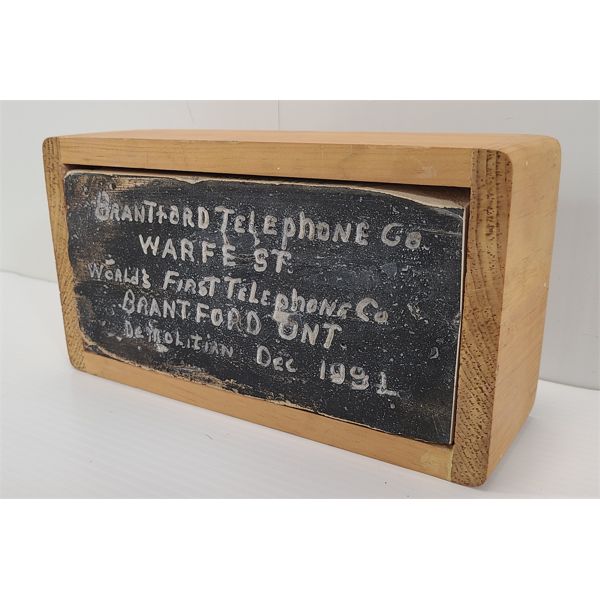 BRANTFORD TElEphoNE Co.
WARFE ST.
WorlD's FIRST TElEphoNE Co
BRANTFORD ONT.
DEMOLITIAN DEC 1991